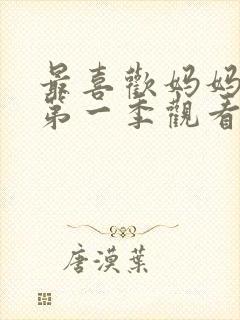 最喜歡媽媽
第一季觀看
唐漠葉